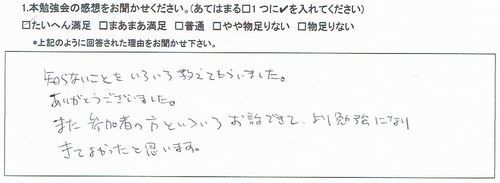 1.本勉強会の感想をお聞かせください。(あてはまる□1つに✔を入れてください)
☑たいへん満足 □まあまあ満足 □普通 □やや物足りない □物足りない
*上記のように回答された理由をお聞かせ下さい。
知らないことをいろいろ教えてもらいました。
ありがとうございました。
また参加者の方といろいろお話できて、より勉強になり
きてよかったと思います。